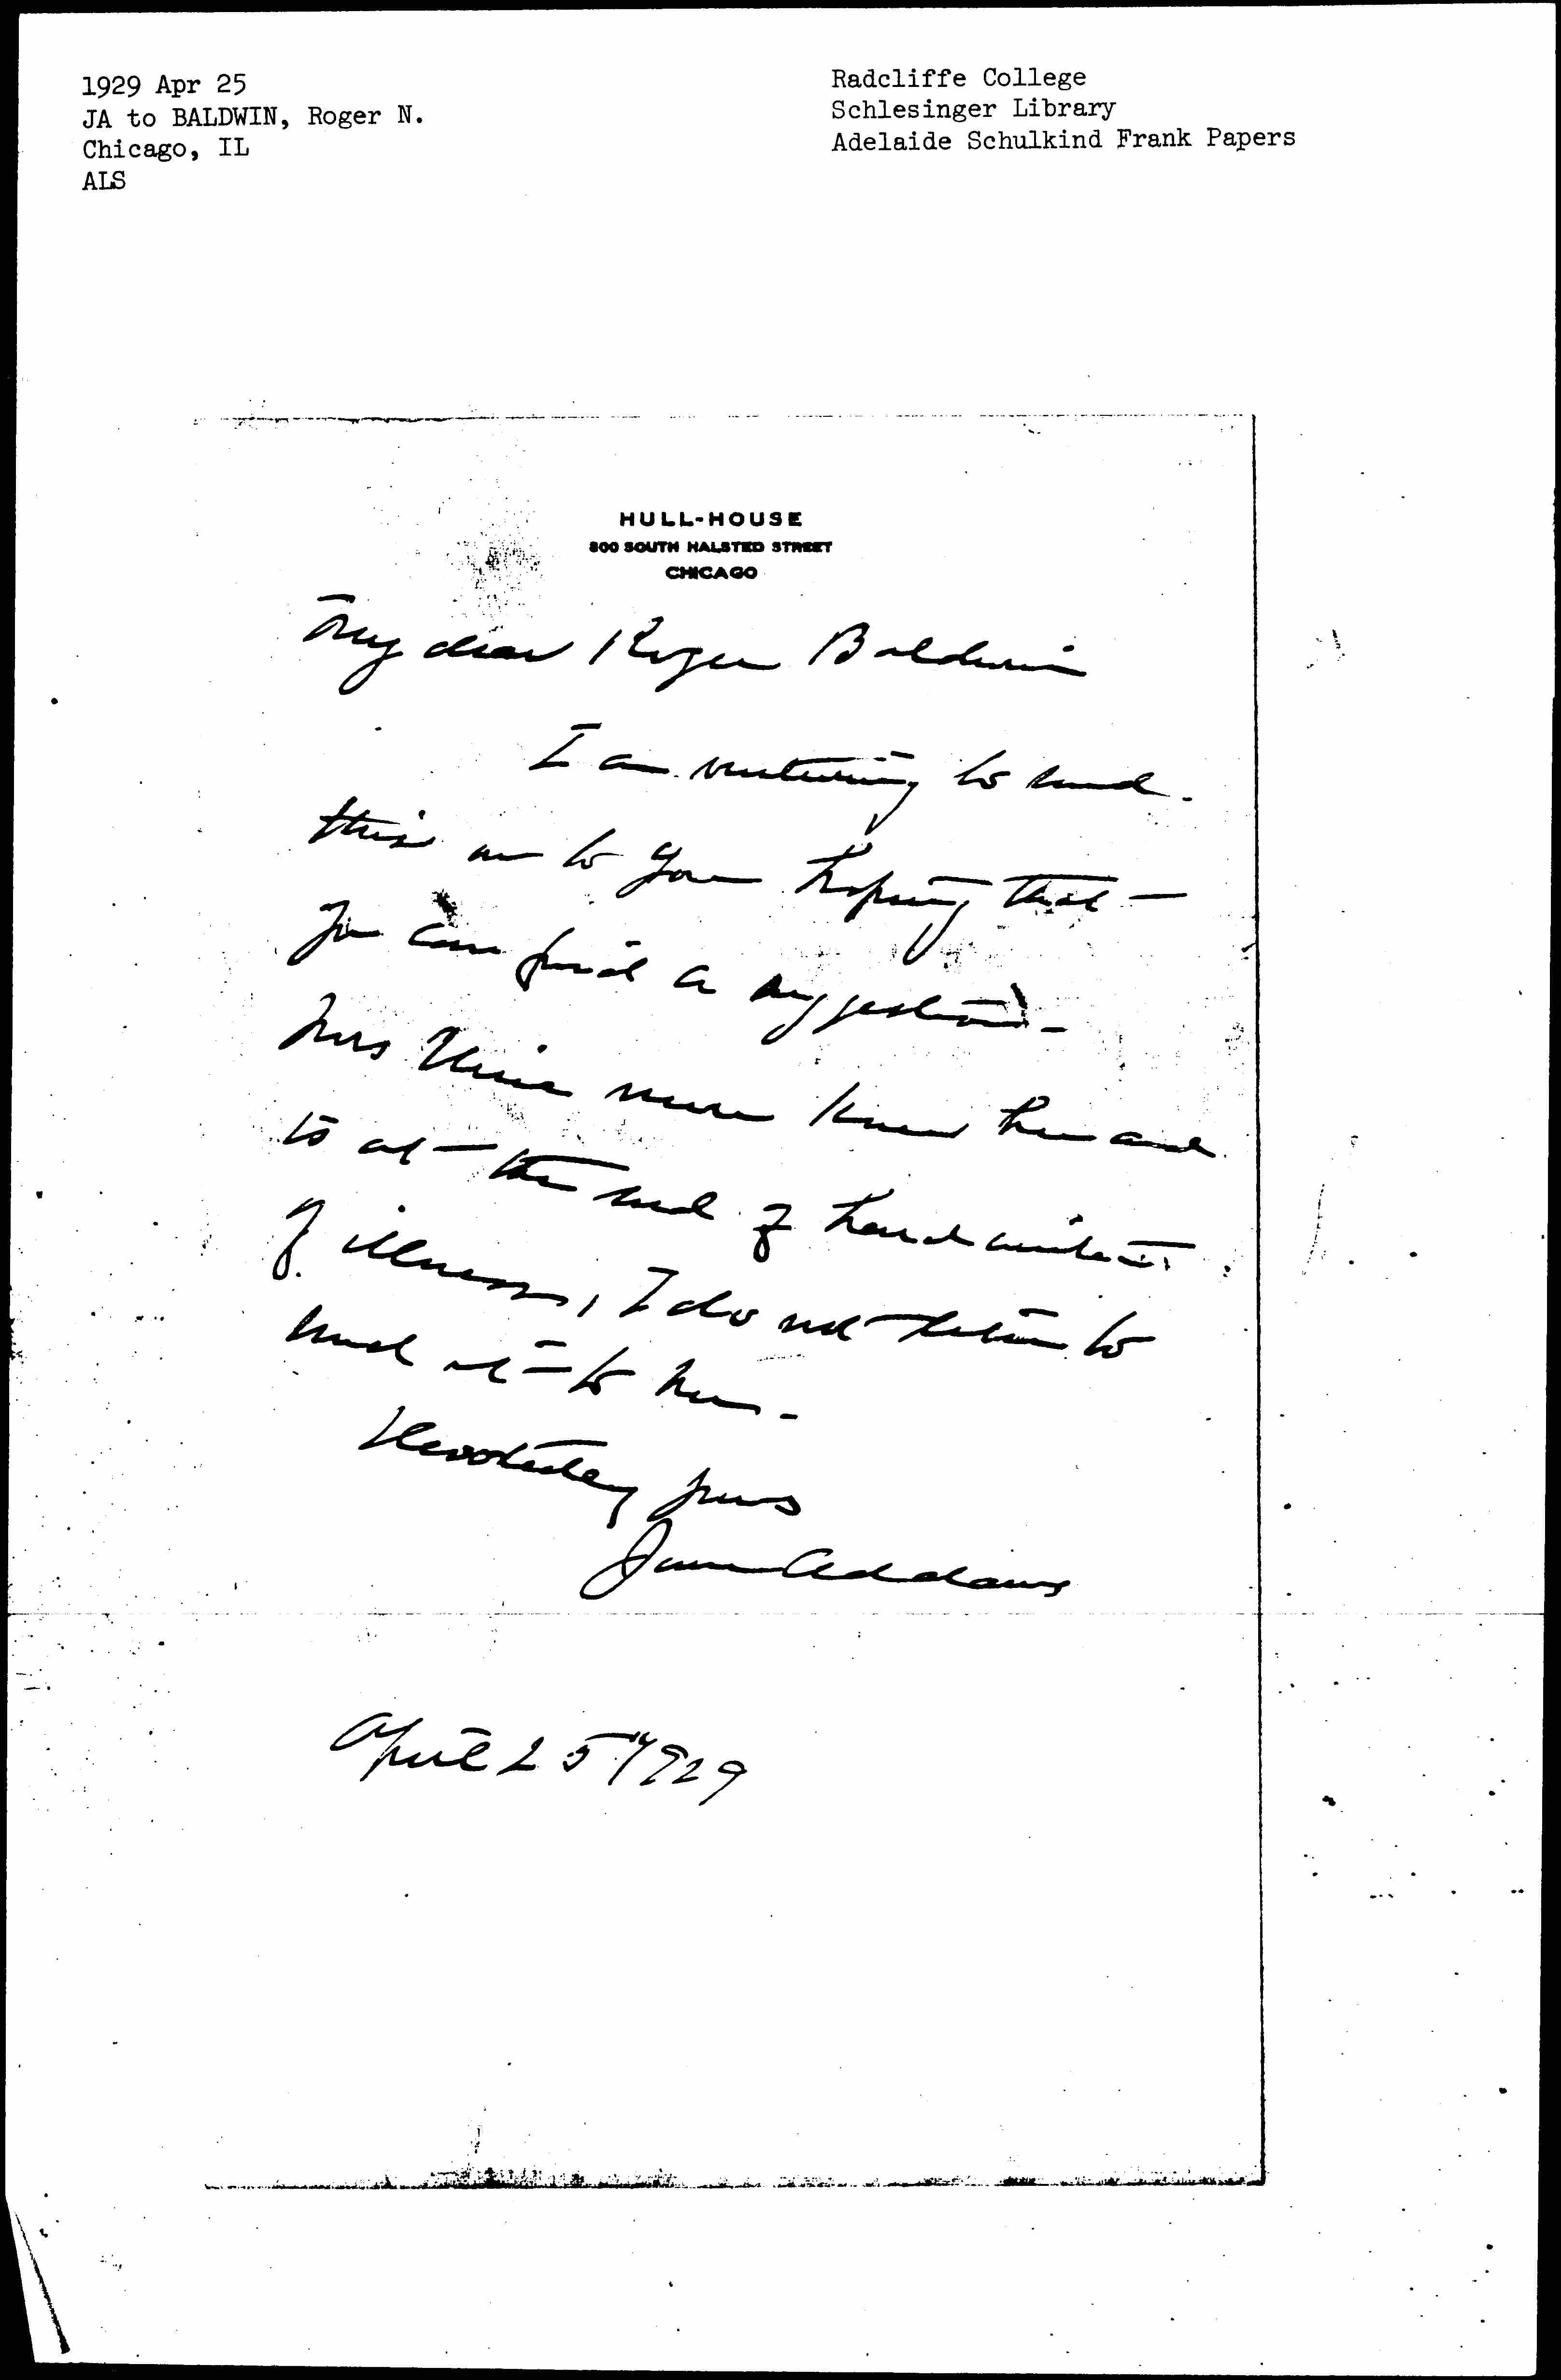 1929 Apr 25
JA to BALDWIN, Roger N.
Chicago, IL
ALS
Radcliffe College
Schlesinger Library
Adelaide Schulkind Frank Papers
HULL-HOUSE
800 SOUTH HALSTED STREET
CHICAGO
My dear Roger Baldwin
I am venturing to send
this on to you hoping that
you can find a suggestion -
Mrs never knew her and
to at the end of
of illness, I do not to
send it to her -
Devotedly yours
Jane Addams
April 25" 1929